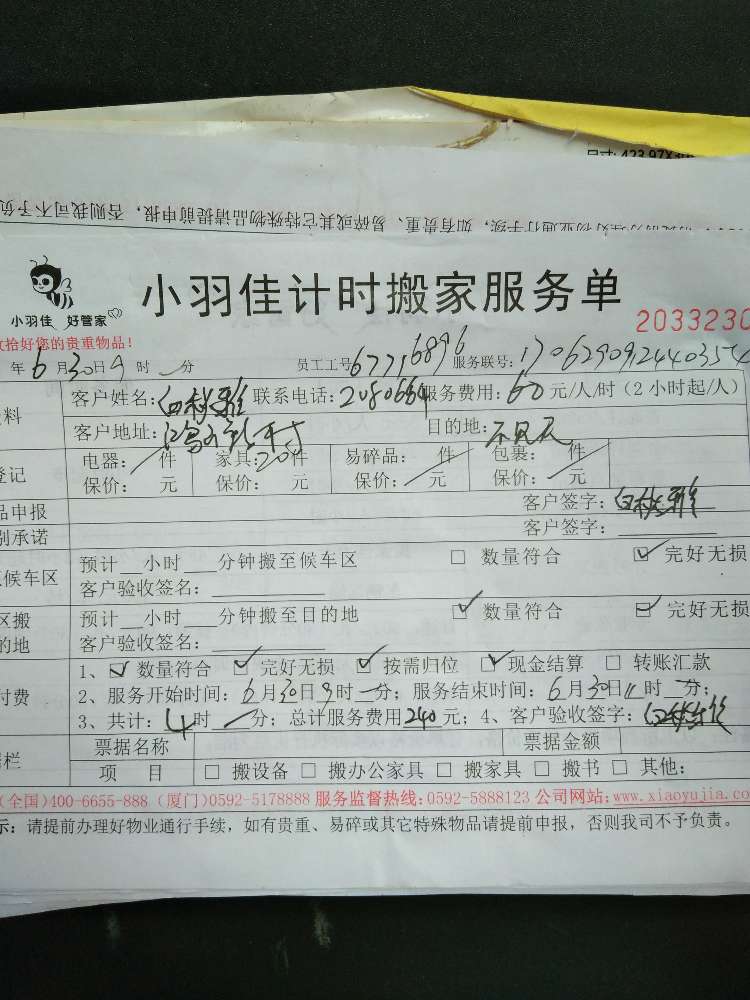 尺寸: 423.97X
小羽佳计时搬家服务单
小羽佳 好管家
2033230
拾好您的贵重物品!
年6月30日9时一分 员工工号67716896 服务联号:
料 客户姓名: 联系电话: 服务费用:60元/人/时（2小时起/人）
客户地址: 目的地:
登记 电器: 件 家具:20件 易碎品: 件 包裹: 件
保价: 元 保价: 元 保价: 元 保价: 元
品申报 客户签字:
别承诺 客户签字:
候车区 预计__小时__分钟搬至候车区 □ 数量符合 ☑ 完好无损
客户验收签名:
区搬 预计__小时__分钟搬至目的地 ☑ 数量符合 ☑ 完好无损
的地 客户验收签名:
付费 1、☑ 数量符合 ☑ 完好无损 ☑ 按需归位 ☑ 现金结算 □ 转账汇款
2、服务开始时间: 6月30日9时一分; 服务结束时间: 6月30日11时一分;
3、共计: 4时一分; 总计服务费用240元; 4、客户验收签字:
栏 票据名称 票据金额
项 目 □ 搬设备 □ 搬办公家具 □ 搬家具 □ 搬书 □ 其他:
(全国)400-6655-888 (厦门)0592-5178888 服务监督热线:0592-5888123 公司网站:www.xiaoyujia.co
示: 请提前办理好物业通行手续，如有贵重、易碎或其它特殊物品请提前申报，否则我司不予负责。